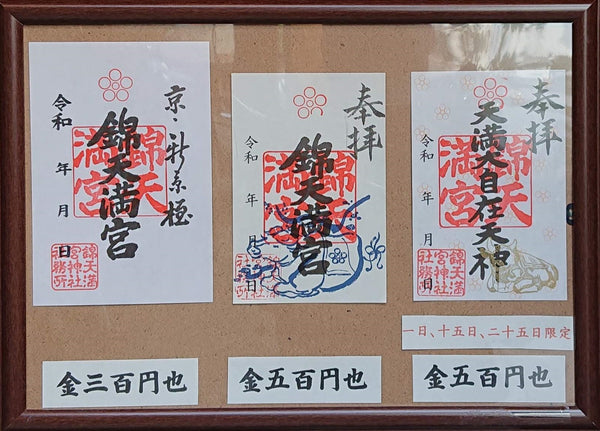 京・新京極
錦天満宮
令和 年 月 日
錦天
満宮
錦天満
宮神社
社務所
金三百円也
奉拝
錦天満宮
令和 年 月 日
錦天
満宮
錦天満
宮神社
社務所
金五百円也
奉拝
天満大自在天神
令和 年 月 日
錦天
満宮
錦天満
宮神社
社務所
一日、十五日、二十五日限定
金五百円也